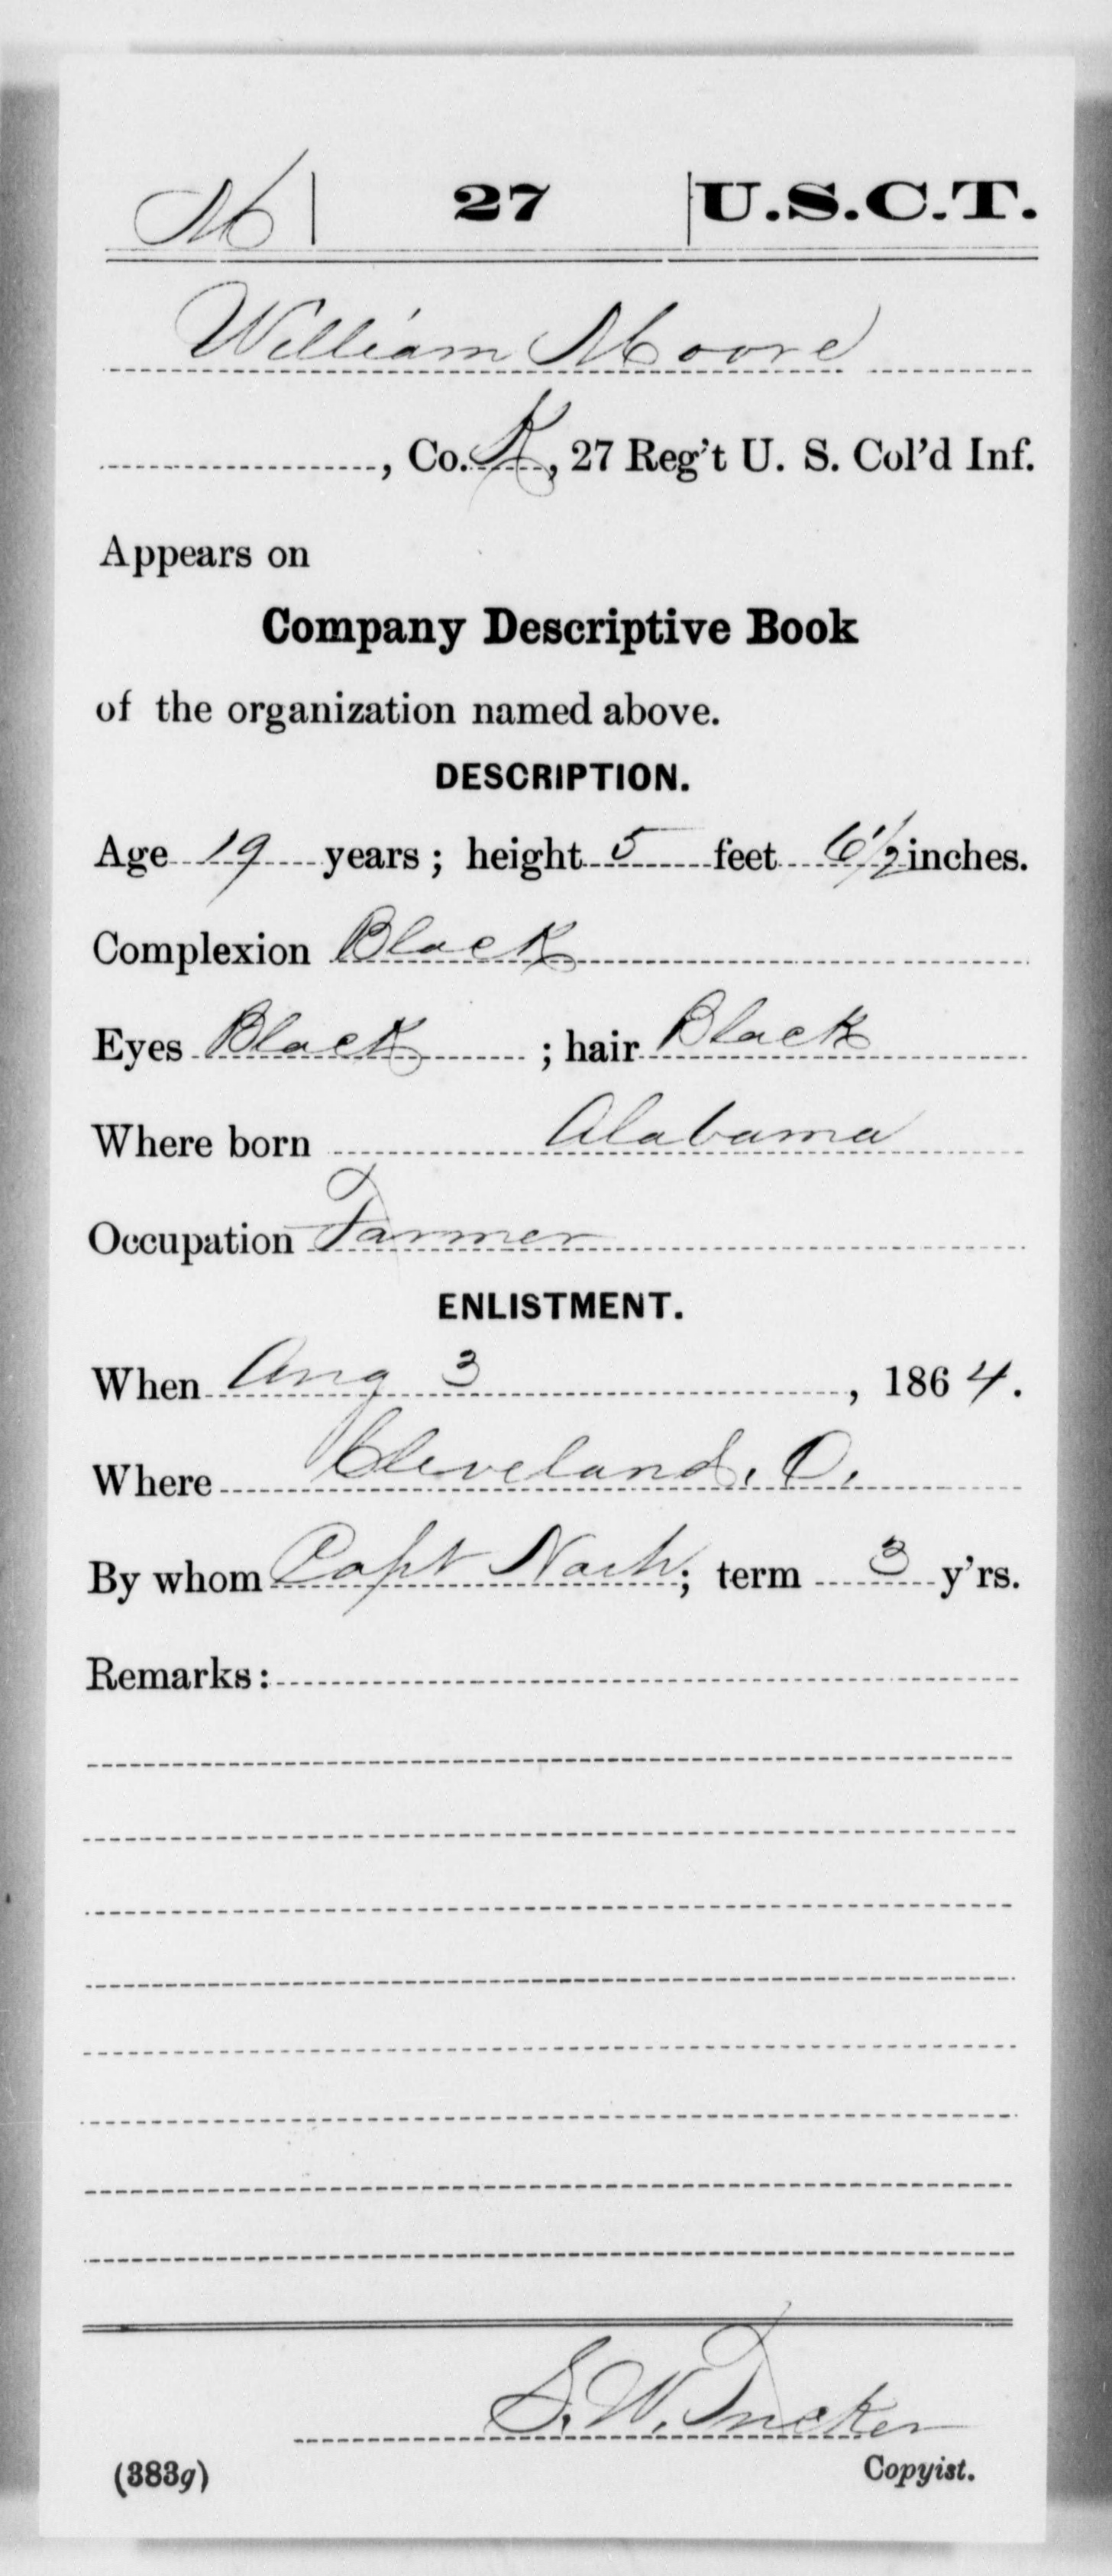 M | 27 | U.S.C.T.
William Moore
, Co. K, 27 Reg't U. S. Col'd Inf.
Appears on
Company Descriptive Book
of the organization named above.
DESCRIPTION.
Age 19 years; height 5 feet 6 1/2 inches.
Complexion Black
Eyes Black; hair Black
Where born Alabama
Occupation Farmer
ENLISTMENT.
When Aug 3, 1864.
Where Cleveland, O.
By whom Capt Nash; term 3 y'rs.
Remarks:
S. W. Tucker
(383g) Copyist.